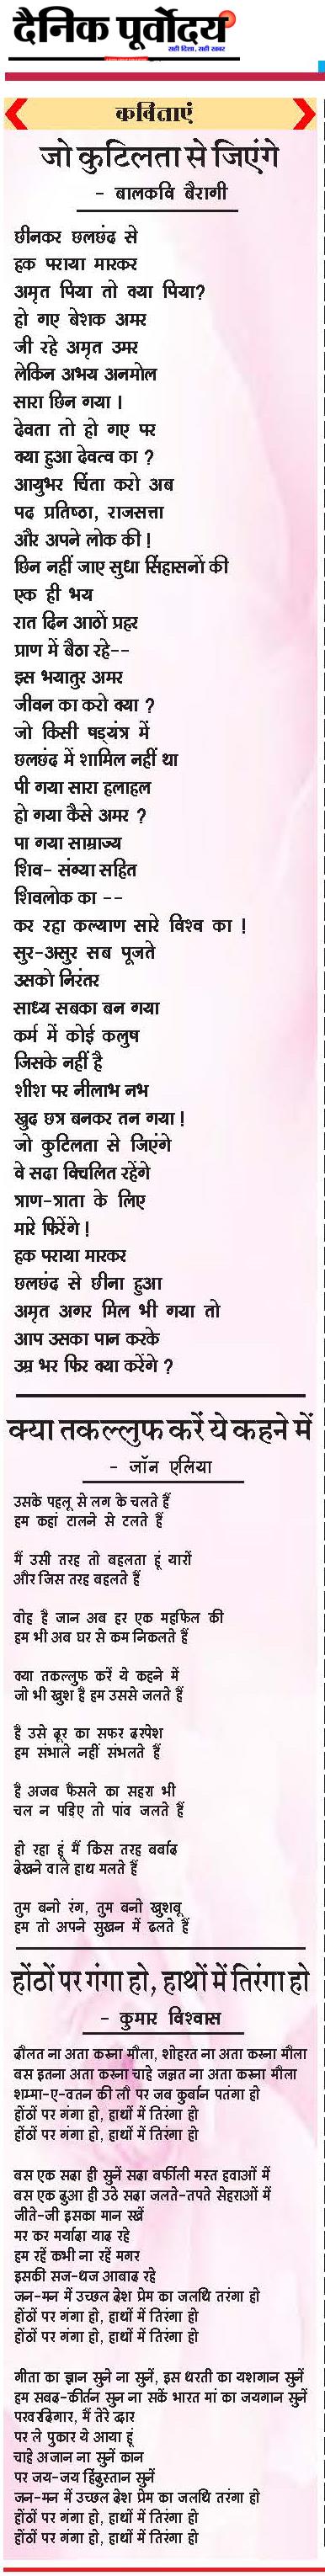 दैनिक पूर्वोदय
सही दिशा, सही खबर
कविताएं
जो कुटिलता से जिएंगे
- बालकवि बैरागी
छीनकर छलछंद से
हक पराया मारकर
अमृत पिया तो क्या पिया?
हो गए बेशक अमर
जी रहे अमृत उमर
लेकिन अभय अनमोल
सारा छिन गया ।
देवता तो हो गए पर
क्या हुआ देवत्व का ?
आयुभर चिंता करो अब
पद प्रतिष्ठा, राजसत्ता
और अपने लोक की !
छिन नहीं जाए सुधा सिंहासनों की
एक ही भय
रात दिन आठों प्रहर
प्राण में बैठा रहे--
इस भयातुर अमर
जीवन का करो क्या ?
जो किसी षड्यंत्र में
छलछंद में शामिल नहीं था
पी गया सारा हलाहल
हो गया कैसे अमर ?
पा गया साम्राज्य
शिव- संग्या सहित
शिवलोक का --
कर रहा कल्याण सारे विश्व का !
सुर-असुर सब पूजते
उसको निरंतर
साध्य सबका बन गया
कर्म में कोई कलुष
जिसके नहीं है
शीश पर नीलाभ नभ
खुद छत्र बनकर तन गया !
जो कुटिलता से जिएंगे
वे सदा विचलित रहेंगे
त्राण-त्राता के लिए
मारे फिरेंगे !
हक पराया मारकर
छलछंद से छीना हुआ
अमृत अगर मिल भी गया तो
आप उसका पान करके
उम्र भर फिर क्या करेंगे ?
क्या तकल्लुफ करें ये कहने में
- जॉन एलिया
उसके पहलू से लग के चलते हैं
हम कहां टालने से टलते हैं
मैं उसी तरह तो बहलता हूं यारों
और जिस तरह बहलते हैं
वोह है जान अब हर एक महफिल की
हम भी अब घर से कम निकलते हैं
क्या तकल्लुफ करें ये कहने में
जो भी खुश है हम उससे जलते हैं
है उसे दूर का सफर दरपेश
हम संभाले नहीं संभलते हैं
है अजब फैसले का सहरा भी
चल न पड़िए तो पांव जलते हैं
हो रहा हूं मैं किस तरह बर्बाद
देखने वाले हाथ मलते हैं
तुम बनो रंग, तुम बनो खुशबू
हम तो अपने सुखन में ढलते हैं
होंठों पर गंगा हो, हाथों में तिरंगा हो
- कुमार विश्वास
दौलत ना अता करना मौला, शोहरत ना अता करना मौला
बस इतना अता करना चाहे जन्नत ना अता करना मौला
शम्मा-ए-वतन की लौ पर जब कुर्बान पतंगा हो
होंठों पर गंगा हो, हाथों में तिरंगा हो
होंठों पर गंगा हो, हाथों में तिरंगा हो
बस एक सदा ही सुनें सदा बर्फीली मस्त हवाओं में
बस एक दुआ ही उठे सदा जलते-तपते सेहराओं में
जीते-जी इसका मान रखें
मर कर मर्यादा याद रहे
हम रहें कभी ना रहें मगर
इसकी सज-धज आबाद रहे
जन-मन में उच्छल देश प्रेम का जलधि तरंगा हो
होंठों पर गंगा हो, हाथों में तिरंगा हो
होंठों पर गंगा हो, हाथों में तिरंगा हो
गीता का ज्ञान सुने ना सुनें, इस धरती का यशगान सुनें
हम सबद-कीर्तन सुन ना सकें भारत मां का जयगान सुनें
परवरदिगार, मैं तेरे द्वार
पर ले पुकार ये आया हूं
चाहे अजान ना सुनें कान
पर जय-जय हिंदुस्तान सुनें
जन-मन में उच्छल देश प्रेम का जलधि तरंगा हो
होंठों पर गंगा हो, हाथों में तिरंगा हो
होंठों पर गंगा हो, हाथों में तिरंगा हो